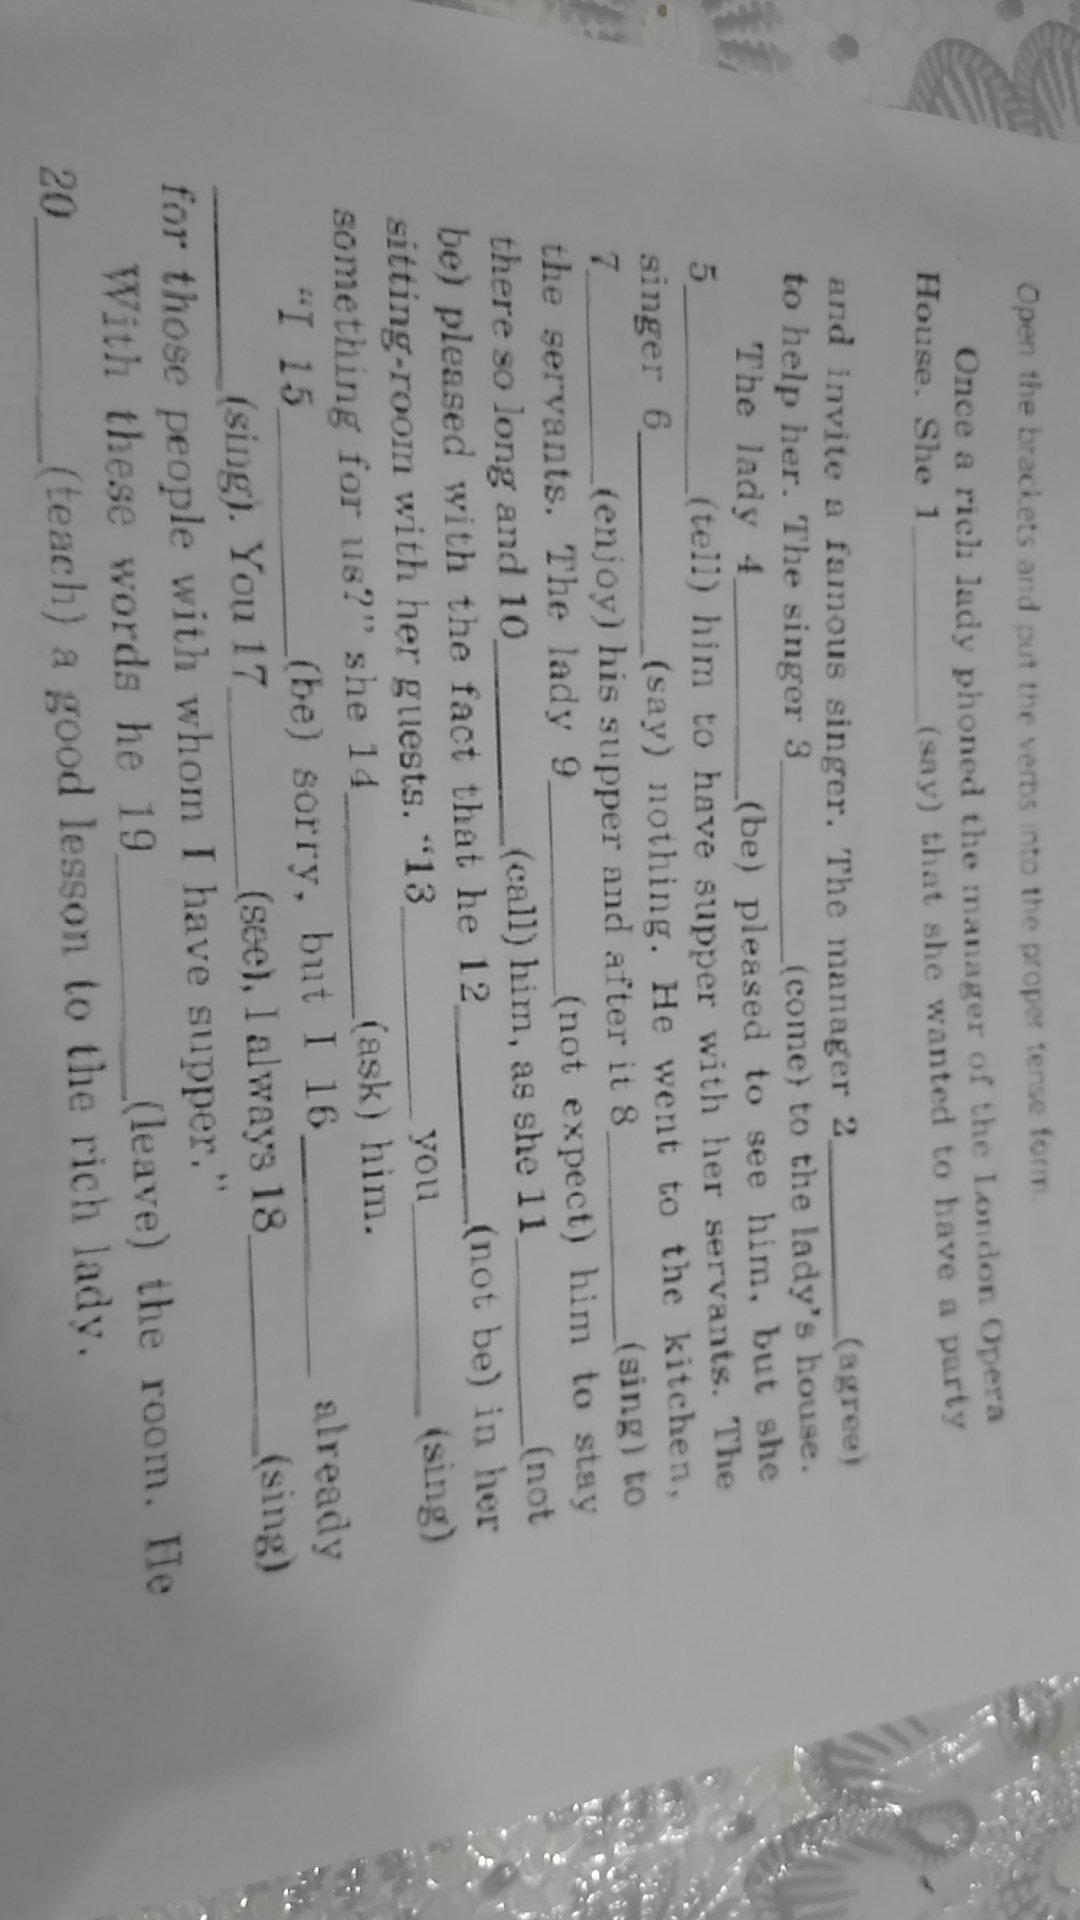 Open the brackets and put the verbs into the proper tense form.
Once a rich lady phoned the manager of the London Opera
House. She 1________(say) that she wanted to have a party
and invite a famous singer. The manager 2________(agree)
to help her. The singer 3________(come) to the lady's house.
The lady 4________(be) pleased to see him, but she
5________(tell) him to have supper with her servants. The
singer 6________(say) nothing. He went to the kitchen,
7________(enjoy) his supper and after it 8________(sing) to
the servants. The lady 9________(not expect) him to stay
there so long and 10________(call) him, as she 11________(not
be) pleased with the fact that he 12________(not be) in her
sitting-room with her guests. "13________ you________ (sing)
something for us?" she 14________(ask) him.
"I 15________(be) sorry, but I 16________ already
________(sing). You 17________(see), I always 18________(sing)
for those people with whom I have supper."
With these words he 19________(leave) the room. He
20________(teach) a good lesson to the rich lady.